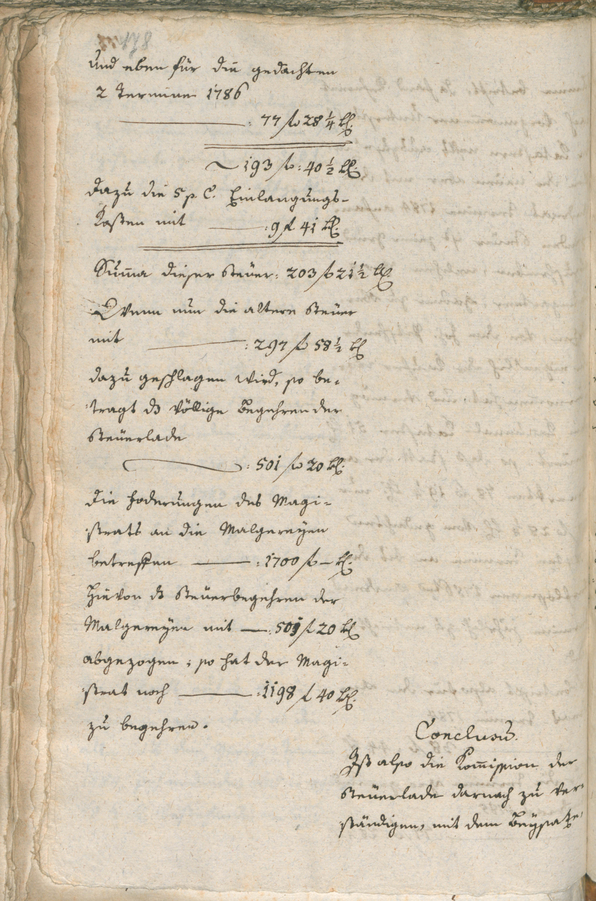 und eben für die gedachten
2 Termine 1786
77 f 28 1/4 kr.
193 f: 40 1/2 kr
dazu die 5 p C. Einlangungs-
Kosten mit 9 f 41 kr.
Suma dieser Steuer: 203 f 21 1/2 kr
Wenn nun die altere Steuer
mit : 297 f 58 1/2 kr
dazu geschlagen wird, so be-
tragt dz völlige Begehren der
Steuerlade
: 501 f 20 kr.
die Foderungen des Magi-
strats an die Malgereyen
betreffen : 1700 f — kr.
Hievon dz Steuerbegehren der
Malgereyen mit —: 501 f 20 kr
abgezogen; so hat der Magi-
strat noch : 1198 f 40 kr.
zu begehren.
Conclusũ.
Ist also die Kommission der
Steuerlade darnach zu ver-
ständigen, mit dem Beysatze